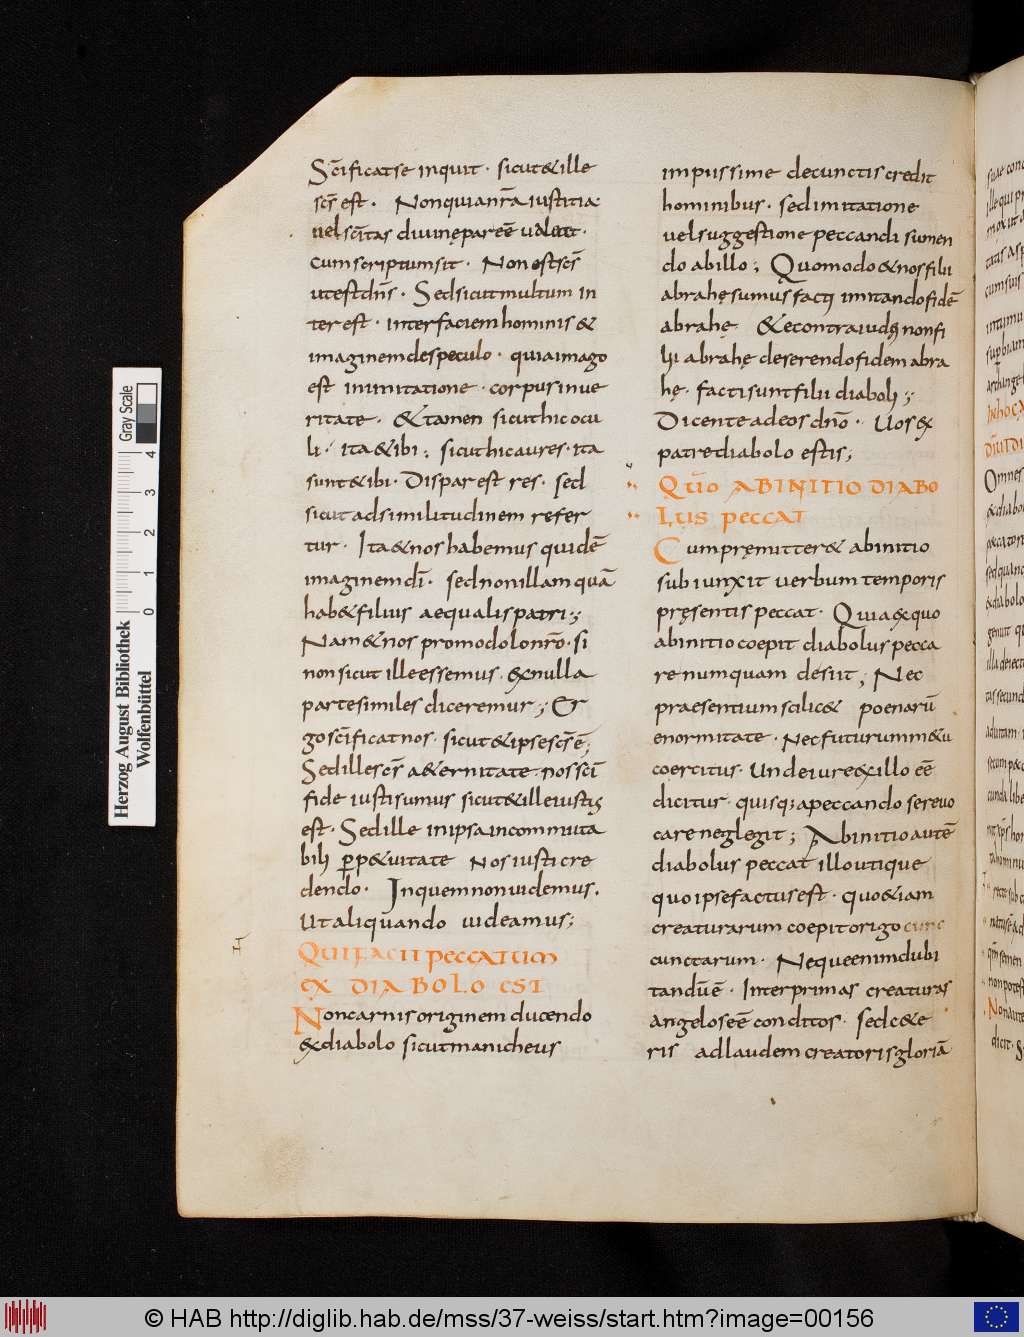 Sc̄ificatse inquit · sicut&ille
sc̄s est . Nonquianr̄a iustitia
uelsc̄itas diuinępareē ualeat ·
cumscriptumsit · Non estsc̄s
utestdn̄s · Sedsicutmultum in
terest · interfaciemhominis &
imaginemdespeculo · quiaimago
est inimitatione · corpusinue
ritate · &tamen sicuthicocu
li · ita&ibi ; sicuthicaures · ita
sunt&ibi · Disparest res · sed
sicutadsimilitudinem refer
tur · Ita&nos habemus quidē
imaginemdī · sednonillamquā
hab&filius aequalispatri ;
Nam&nos promodolonr̄o · si
nonsicut illeessemus · exnulla
partesimiles diceremur ; Er
gosc̄ificatnos · sicut&ipsesc̄sē ;
Sedillesc̄s a&ernitate · nossc̄i
fide iustisumus sicut&illeiustus
est · Sedille inipsaincommuta
bili perp&uitate Nosiusticre
dendo · Inquemnonuidemus .
Utaliquando uideamus ;
QUI FACIT PECCATUM
EX DIABOLO EST
Noncarnisoriginem ducendo
exdiabolo sicutmanicheus
impiissime decunctiscredit
hominibus · sedimitatione
uelsuggestione peccandi sumen
do abillo ; Quomodo&nosfilii
abrahęsumusfacti imitandofidē
abrahę &econtraiudęi nonfi
lii abrahę deserendofidem abra
hę · factisuntfilii diaboli ;
Dicenteadeos dn̄o · Uosex
patrediabolo estis ;
QŪO ABINITIO DIABO
LUS PECCAT
Cumpręmitter& abinitio
subiunxit uerbum temporis
pręsentis peccat · Quiaexquo
abinitiocoepit diabolus pecca
re numquam desiit ; Nec
praesentiumscilic& poenarū
enormitate · Necfuturumm&u
coercitus · Undeiureexillo eē
dicitur · quisq; apeccando sereuo
careneglegit ; Abinitioautē
diabolus peccat illoutique
quoipsefactusest · quo&iam
creaturarum coepitorigo cunc
cunctarum · Nequeenimdubi
tandūē · Interprimas creaturas
angeloseē conditos · sedc&e
ris adlaudemcreatorisgloriā
Herzog August Bibliothek
Wolfenbüttel
0 1 2 3 4
Gray Scale
© HAB http://diglib.hab.de/mss/37-weiss/start.htm?image=00156